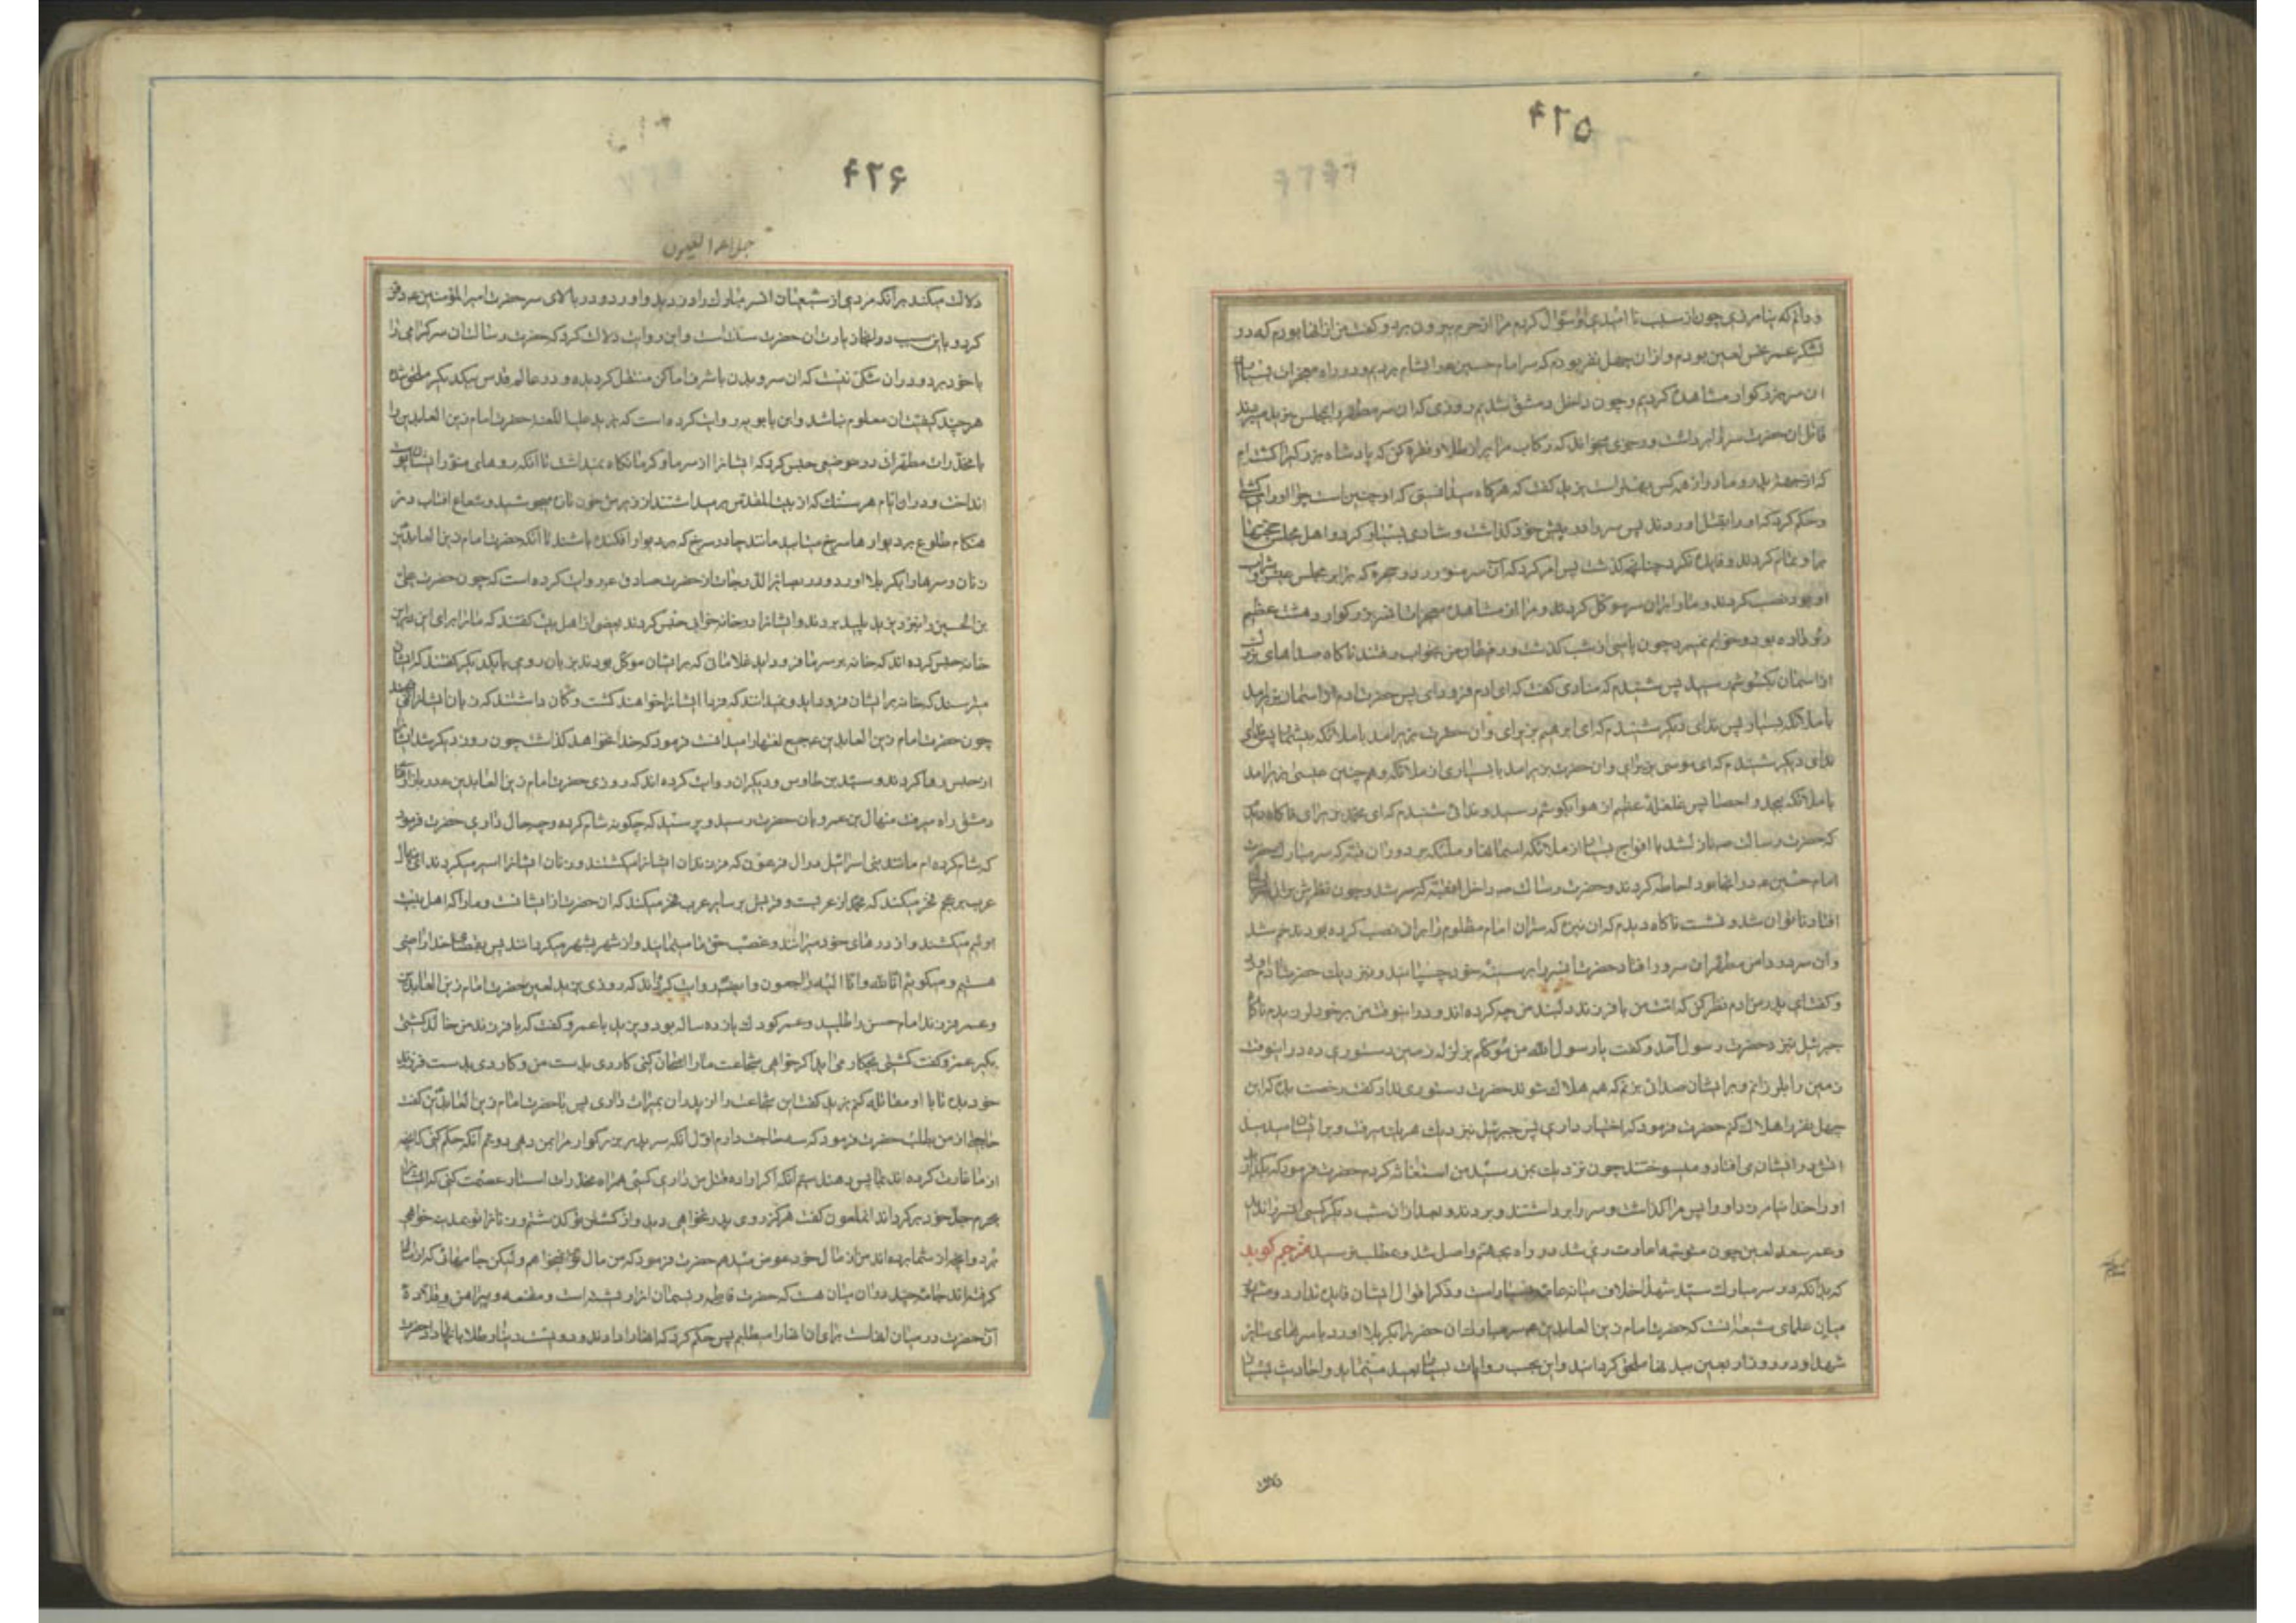 ۴۲۵
و دانم که نیامرزی چون از سبب نا امیدی او سؤال کردم مرا از حرم بیرون برد و کفت من از انها بودم که در
لشکر عمر نحس لعین بودم و از ان چهل نفر بودم که سر امام حسین ع را بشام بردیم و در راه معجزات بسیار از
ان سر بزرکوار مشاهده کردیم و چون داخل دمشق شدیم روزی که ان سر مطهر را بمجلس یزید میبردند
قاتل ان حضرت سر را برداشت و رجزی میخواند که رکاب مرا پر از طلا و نقره کن که پادشاه بزرک را کشته‌ام
که از جهة پدر و مادر از همه کس بهتر است یزید کفت که هرکاه میدانستی که او چنین است چرا او را کشتی
و حکم کرد که او را بقتل اوردند پس سر را در پیش خود کذاشت و شادی بسیار کرد و اهل مجلس حجتها
بر او تمام کردند و فایده نکرد چنانچه کذشت پس امر کرد که آن سر منور را در حجره که برابر مجلس عیش و شراب
او بود نصب کردند و ما را بر ان سر موکل کردند و مرا از مشاهده معجزات ان سر بزرکوار دهشت عظیم
رو داده بود و خوابم نمیبرد چون پاسی از شب کذشت و رفیقان من بخواب رفتند ناکاه صداهای
از اسمان بکوشم رسید پس شنیدم که منادی کفت که ای ادم فرود ای پس حضرت ادم از اسمان بزیر امد
با ملائکه بسیار پس ندای دیکر شنیدم که ای ابرهیم بزیر ای و ان حضرت بزیر امد با ملائکه بیشمار پس
ندای دیکر شنیدم که ای موسی بزیر ای و ان حضرت بزیر امد با بسیاری از ملائکه و هم چنین عیسی بزیر امد
با ملائکه بیحد و احصا پس غلغلهٔ عظیم از هوا بکوشم رسید و ندائی شنیدم که ای محمد بزیر ای ناکاه دیدم
که حضرت رسالت ص نازل شد با افواج بسیار از ملائکه اسمانها و ملائکه بر دور ان قبه که سر مبارک حضرت
امام حسین ع در انجا بود احاطه کردند و حضرت رسالت ص داخل ان قبه که سر شد و چون نظرش بر ان
افتاد ناتوان شد و نشست ناکاه دیدم که ان نیزه که سر ان امام مظلوم را بر ان نصب کرده بودند خم شد
و ان سر در دامن مطهر ان سرور افتاد حضرت انسر را بر سینه خود چسپانید و نزدیک حضرت ادم اورد
و کفت ای پدر من ادم نظر کن که امت من با فرزند دلبند من چه کرده اند در انوقت من بر خود لرزیدم ناکاه
جبرئیل نزد حضرت رسول آمد و کفت یا رسول الله من موکلم بزلزله زمین دستوری ده در اینوقت
زمین را بلرزانم و بر ایشان صدائی بزنم که همه هلاک شوند حضرت دستوری نداد کفت رخصت بده که این
چهل نفر را هلاک کنم حضرت فرمود که اختیار داری پس جبرئیل نزدیک هر یک میرفت و بر ایشان میدمید
اتش در ایشان می افتاد و میسوختند چون نزدیک بمن رسید من استغاثه کردم حضرت فرمود که بکذار
او را خدا نیامرزد او را پس مرا کذاشت و سر را برداشتند و بردند و بعد از ان شب دیکر کسی انسر را ندید
و عمر سعد لعین چون متوجه امارت ری شد در راه بجهنم واصل شد و بمطلب نرسید مترجم کوید
که بدانکه در سر مبارک سید شهدا خلاف میانه عامه بسیار است و ذکر اقوال ایشان فایده ندارد و مشهور
میان علمای شیعه انست که حضرت امام زین العابدین ع سر مبارک ان حضرت را بکربلا اورد با سرهای سایر
شهدا و در روز اربعین ببدنها ملحق کردانید و این بحسب روایات بسیار بعید مینماید و احادیث بسیار
دلالت
۴۲۶
جلاء العیون
دلالت میکند بر آنکه مردی از شیعیان ان سر مبارک را دزدید و اورد و در بالای سر حضرت امیر المؤمنین ع دفن
کرد و باین سبب در انجا زیارت ان حضرت سنت است و این روایت دلالت کرد که حضرت رسالت ان سر کرامی را
با خود برد و در ان شکی نیست که ان سر و بدن باشرف اماکن منتقل کردیده و در عالم قدس بیکدیکر ملحق شده
هر چند کیفیت ان معلوم نباشد و ابن بابویه روایت کرده است که یزید علیه اللعنه حضرت امام زین العابدین را
با مخدرات مطهرات در حوضی حبس کرد که ایشانرا از سرما و کرما نکاه نمیداشت تا آنکه روهای منور ایشان پوست
انداخت و در ان ایام هر سنک که از بیت المقدس برمیداشتند از زیرش خون تازه میجوشید و شعاع افتاب در
هنکام طلوع بر دیوارها سرخ میتابید مانند چادر سرخ که بر دیوار افکنده باشند تا آنکه حضرت امام زین العابدین
زنان و سرها را بکربلا اورد و در بصائر الدرجات از حضرت صادق ع روایت کرده است که چون حضرت علی
بن الحسین را نیز دین یزید پلید بردند و ایشانرا در خانه خرابی حبس کردند بعضی از اهل بیت کفتند که ما را برای این در این
خانه حبس کرده اند که خانه بر سر ما فرود اید غلامان که بر ایشان موکل بودند بزبان رومی با یکدیکر کفتند که ایشان
میترسند که خانه بر ایشان فرود اید و نمیدانند که فردا ایشانرا خواهند کشت و کمان داشتند که زبان ایشانرا نمیفهمند
چون حضرت امام زین العابدین ع جمیع لغتها را میدانست فرمود که خدا نخواهد کذاشت چون روز دیکر شد ایشانرا
از حبس رها کردند و سید بن طاوس و دیکران روایت کرده اند که روزی حضرت امام زین العابدین ع در بازارهای
دمشق راه میرفت منهال بن عمرو بان حضرت رسید و پرسید که چکونه شام کرده و چه حال داری حضرت فرمود
که شام کرده ام مانند بنی اسرائیل در ال فرعون که فرزندان ایشانرا میکشتند و زنان ایشانرا اسیر میکردند ای منهال
عرب بر عجم فخر میکند که محمد از عربست و قریش بر سایر عرب فخر میکند که ان حضرت از ایشانست و ما را که اهل بیت
اوئیم میکشند و از درهای خود میرانند و غصب حق ما مینمایند و از شهر بشهر میکردانند پس بقضای خدا راضی
هستیم و میکوئیم انا لله و انا الیه راجعون و ایضا روایت کرده اند که روزی یزید لعین حضرت امام زین العابدین
و عمر فرزند امام حسن را طلبید و عمر کودک یازده ساله بود و یزید با عمر کفت که با فرزند من خالد کشتی
بکیر عمر کفت کشتی بچکار می اید اکر خواهی شجاعت ما را امتحان کنی کاردی بدست من و کاردی بدست فرزند
خود بده تا با او مقاتله کنم یزید کفت این شجاعت را از پدران بمیراث داری پس با حضرت امام زین العابدین کفت
حاجتی از من بطلب حضرت فرمود که سه حاجت دارم اول آنکه سر پدر بزرکوار مرا بمن دهی دویم آنکه حکم کنی که انچه
از ما غارت کرده اند بما پس دهند سیم آنکه اکر اراده قتل من داری کسی همراه مخدرات استار عصمت کنی که ایشانرا
بحرم جد خود برکرداند انملعون کفت هرکز روی پدر نخواهی دید و از کشتن تو کذشتم و زنانرا تو بمدینه خواهی
برد و انچه از شما برده اند من از مال خود عوض میدهم حضرت فرمود که من مال تو نمیخواهم ولیکن جامهائی که از ما
کرفته اند جامهٔ چند در ان میان هست که حضرت فاطمه ریسمان انرا رشته است و مقنعه و پیراهن و قلاده
آن حضرت در میان انهاست برای ان انها را میطلبم پس حکم کرد که انها را دادند و دویست دینار طلا با انها داد حضرت